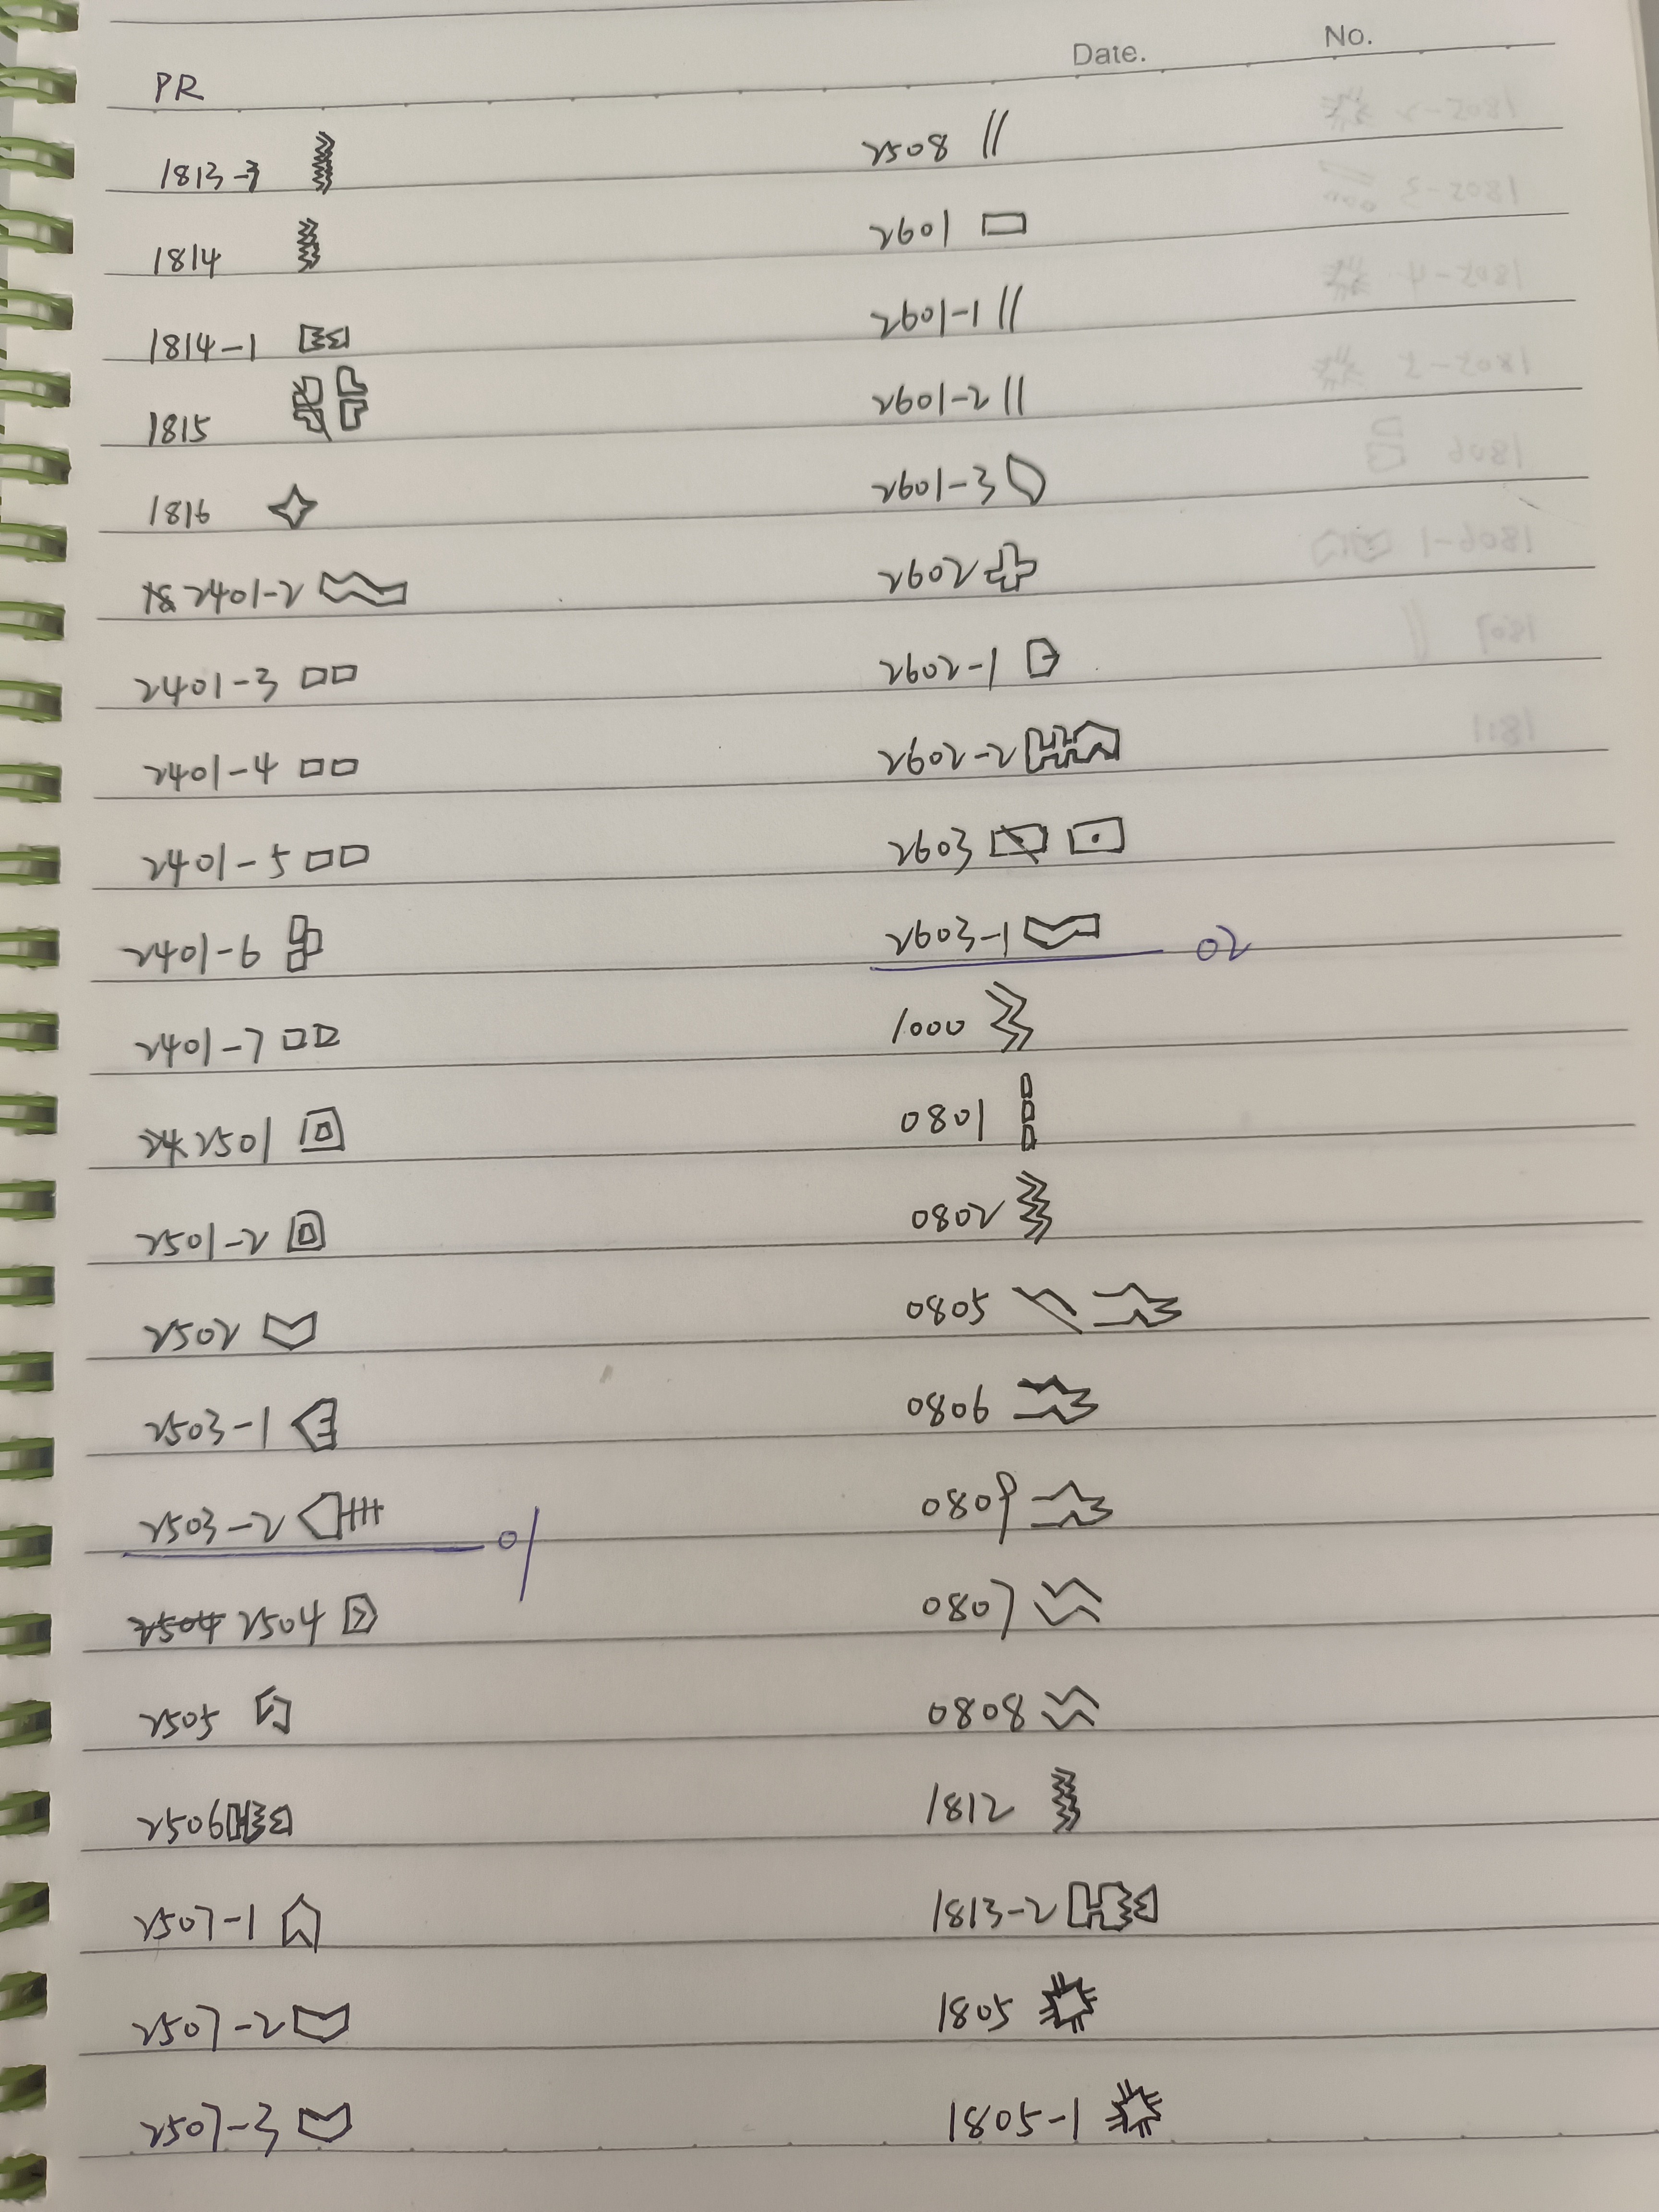 Date. No.
PR
1813-3
1814
1814-1
1815
1816
2401-2
2401-3
2401-4
2401-5
2401-6
2401-7
2501
2501-2
2502
2503-1
2503-2
01
2504 2504
2505
2506
2507-1
2507-2
2507-3
2508
2601
2601-1
2601-2
2601-3
2602
2602-1
2602-2
2603
2603-1
02
1000
0801
0802
0805
0806
0809
0807
0808
1812
1813-2
1805
1805-1